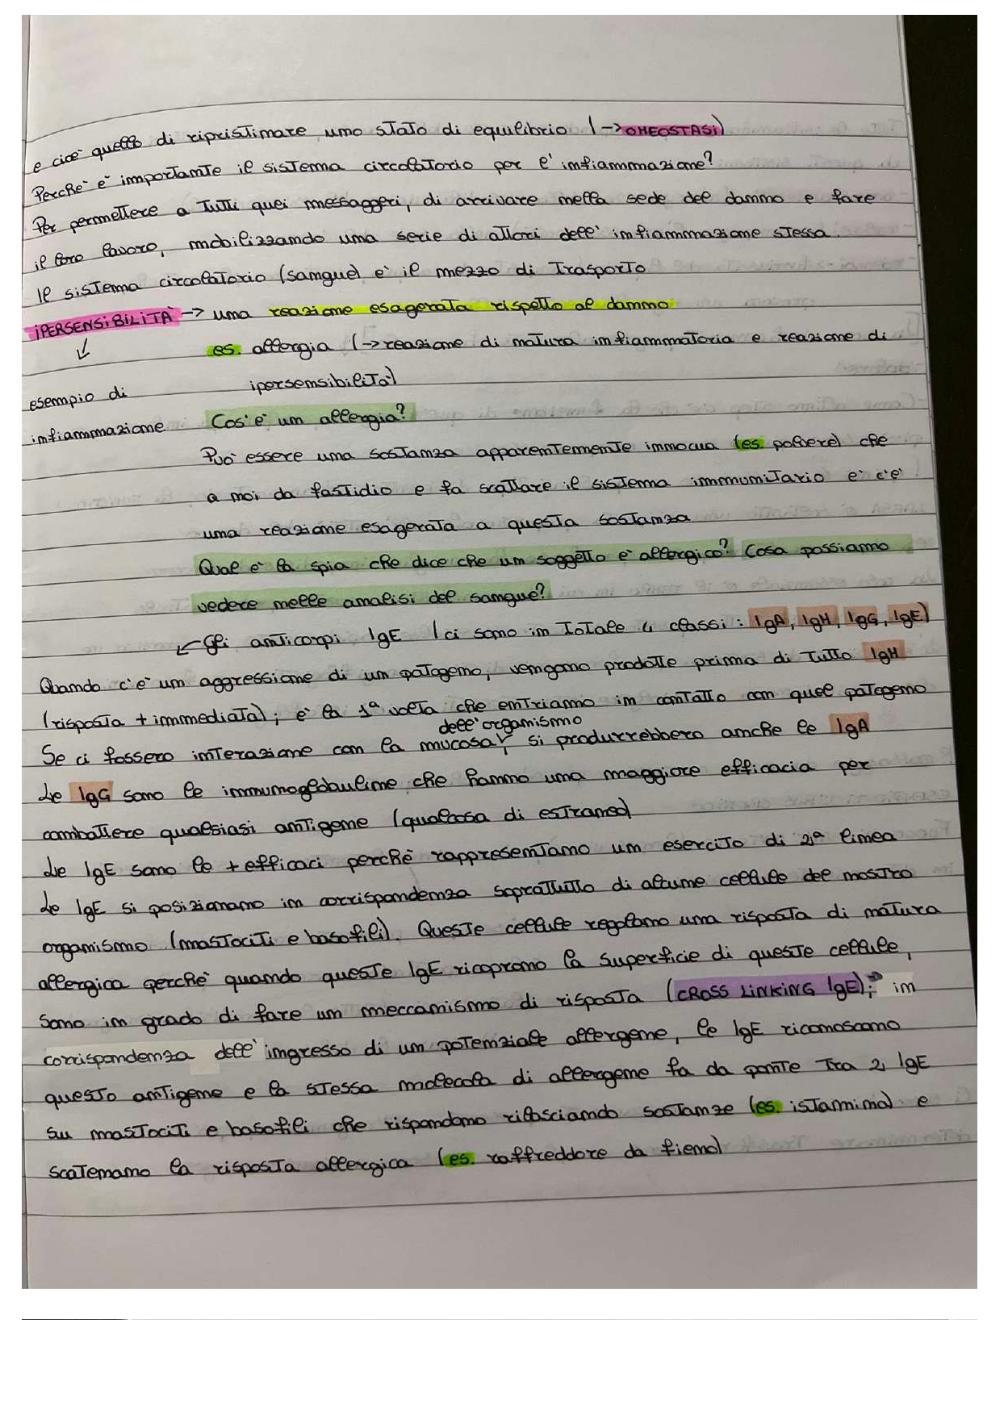 e cioè quello di ripristinare uno stato di equilibrio (→OMEOSTASI)
Perchè è importante il sistema circolatorio per l'infiammazione?
Per permettere a tutti quei messaggeri, di arrivare nella sede del danno e fare
il loro lavoro, mobilizzando una serie di attori dell'infiammazione stessa.
Il sistema circolatorio (sangue) è il mezzo di trasporto
IPERSENSIBILITÀ → una reazione esagerata rispetto al danno
es. allergia (→reazione di natura infiammatoria e reazione di
ipersensibilità)
esempio di
infiammazione
Cos'è un allergia?
Può essere una sostanza apparentemente innocua (es. polvere) che
a noi da fastidio e fa scattare il sistema immunitario e c'è
una reazione esagerata a questa sostanza
Qual è la spia che dice che un soggetto è allergico? Cosa possiamo
vedere nelle analisi del sangue?
Gli anticorpi IgE (ci sono in totale 4 classi: IgA, IgM, IgG, IgE)
Quando c'è un aggressione di un patogeno, vengono prodotte prima di tutto IgM
(risposta + immediata); è la 1ª volta che entriamo in contatto con quel patogeno
Se ci fossero interazione con la mucosa dell'organismo, si produrrebbero anche le IgA
Le IgG sono le immunoglobuline che hanno una maggiore efficacia per
combattere qualsiasi antigene (qualcosa di estraneo)
Le IgE sono le + efficaci perchè rappresentano un esercito di 2ª linea
Le IgE si posizionano in corrispondenza soprattutto di alcune cellule del nostro
organismo (mastociti e basofili). Queste cellule regolano una risposta di natura
allergica perchè quando queste IgE ricoprono la superficie di queste cellule,
sono in grado di fare un meccanismo di risposta (CROSS LINKING IgE): in
corrispondenza dell'ingresso di un potenziale allergene, le IgE riconoscono
questo antigene e la stessa molecola di allergene fa da ponte tra 2 IgE
su mastociti e basofili che rispondono rilasciando sostanze (es. istamina) e
scatenano la risposta allergica (es. raffreddore da fieno)